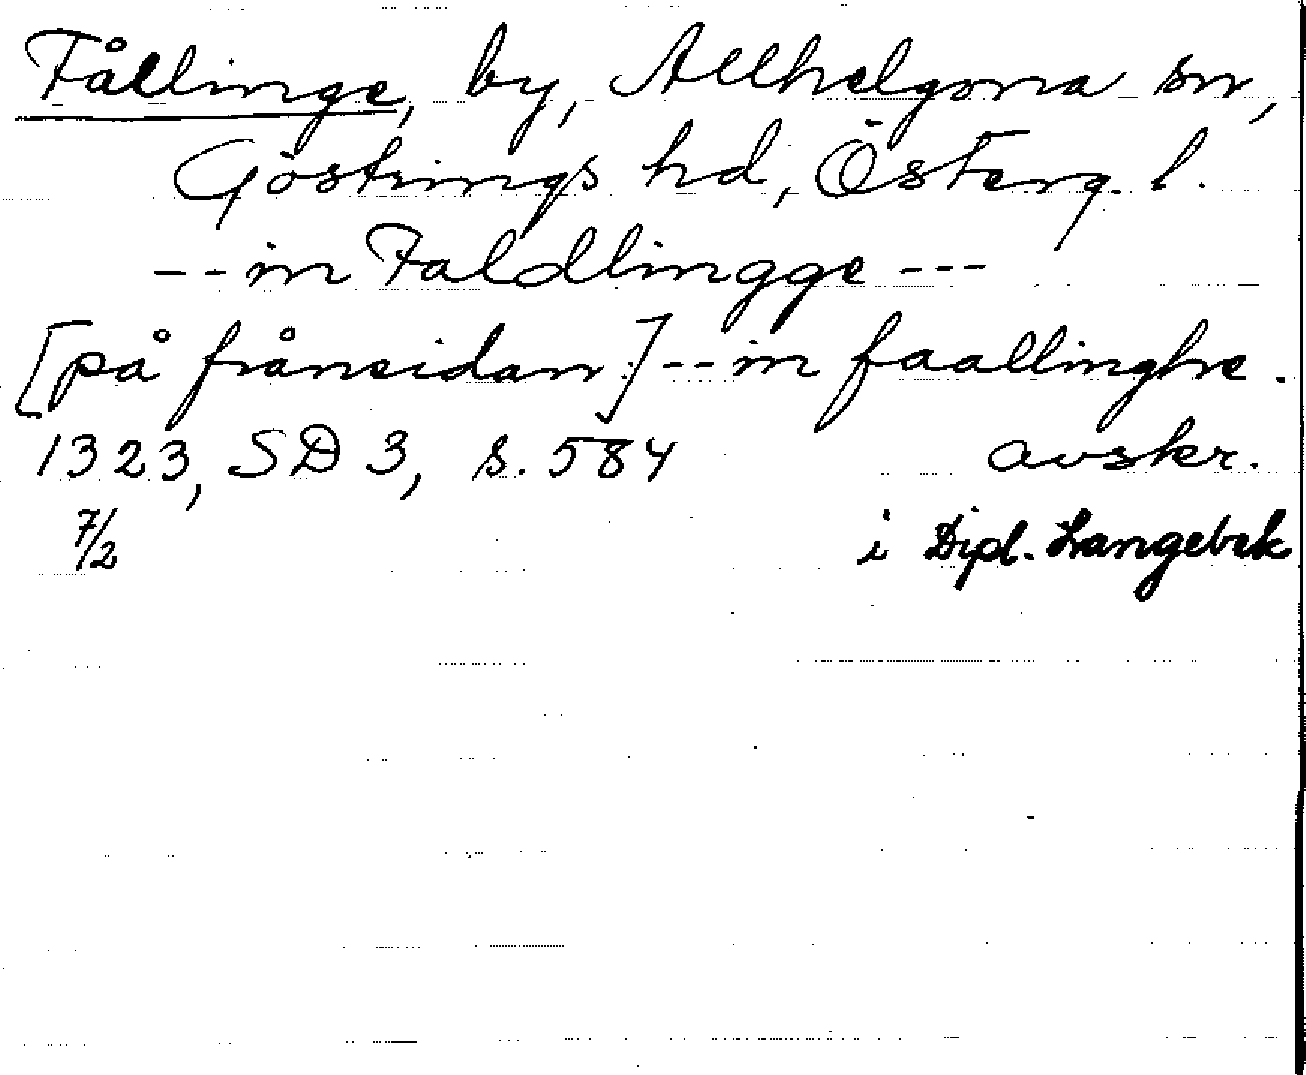 Fållinge, by, Allhelgona sn,
Göstrings hd, Österg. l.
-- in Faldlingge ---
[på frånsidan:] -- in faallinghe.
1323, SD 3, s. 584 avskr.
7/2 i Dipl. Langebek